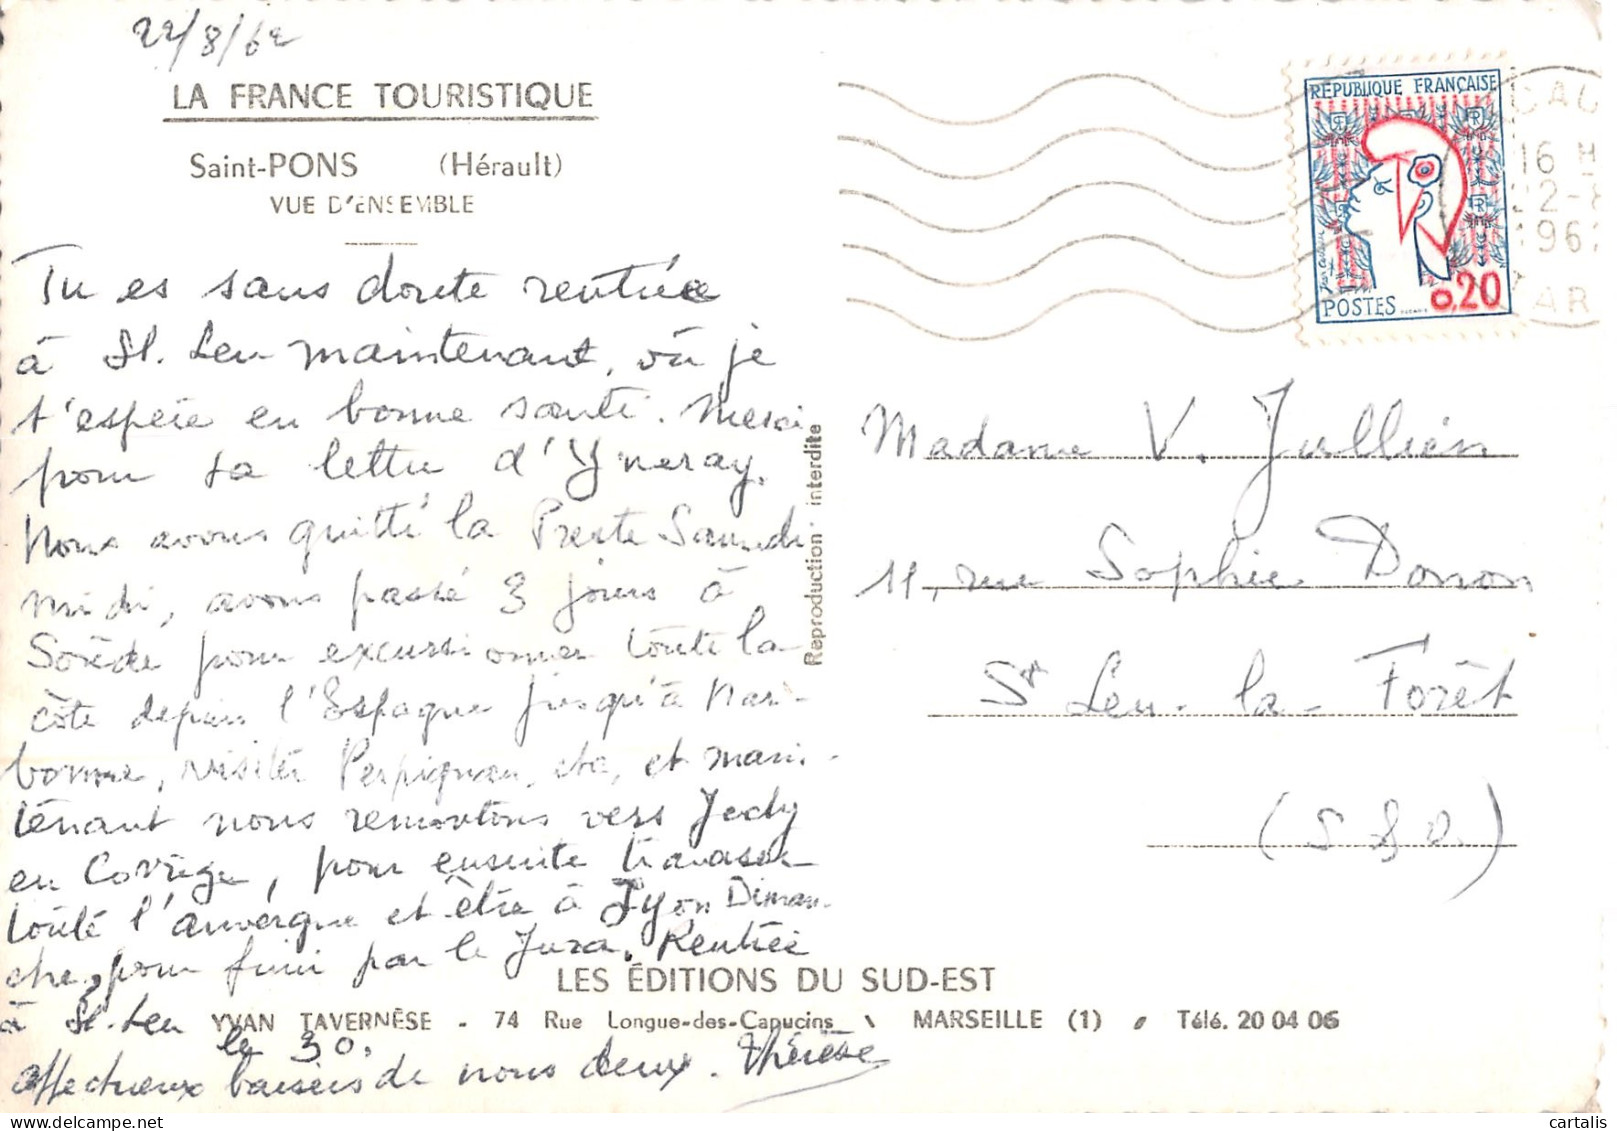 22/8/62
LA FRANCE TOURISTIQUE
Saint-PONS (Hérault)
VUE D'ENSEMBLE
Tu es sans doute rentrée
à St. Leu maintenant, où je
t'espère en bonne santé. Merci
pour ta lettre d'Yneray.
Nous avons quitté la Preste Samedi
midi, avons passé 3 jours à
Sorède pour excursionner toute la
côte depuis l'Espagne jusqu'à Nar-
bonne, visiter Perpignan, etc, et main-
tenant nous remontons vers
en Corrèze, pour ensuite traverser
toute l'auvergne et être à Lyon Diman-
che, pour finir par le Jura. Rentrée
à St. Leu le 30.
affectueux baisers de nous deux. Thérèse
REPUBLIQUE FRANÇAISE
POSTES 0.20
16 H
22-8
196
Madame V. Jullien
11, rue Sophie Donon
St Leu-la-Forêt
(S & O.)
Reproduction interdite
LES ÉDITIONS DU SUD-EST
YVAN TAVERNÈSE - 74 Rue Longue-des-Capucins \ MARSEILLE (1) - Télé. 20 04 06
© cartalis